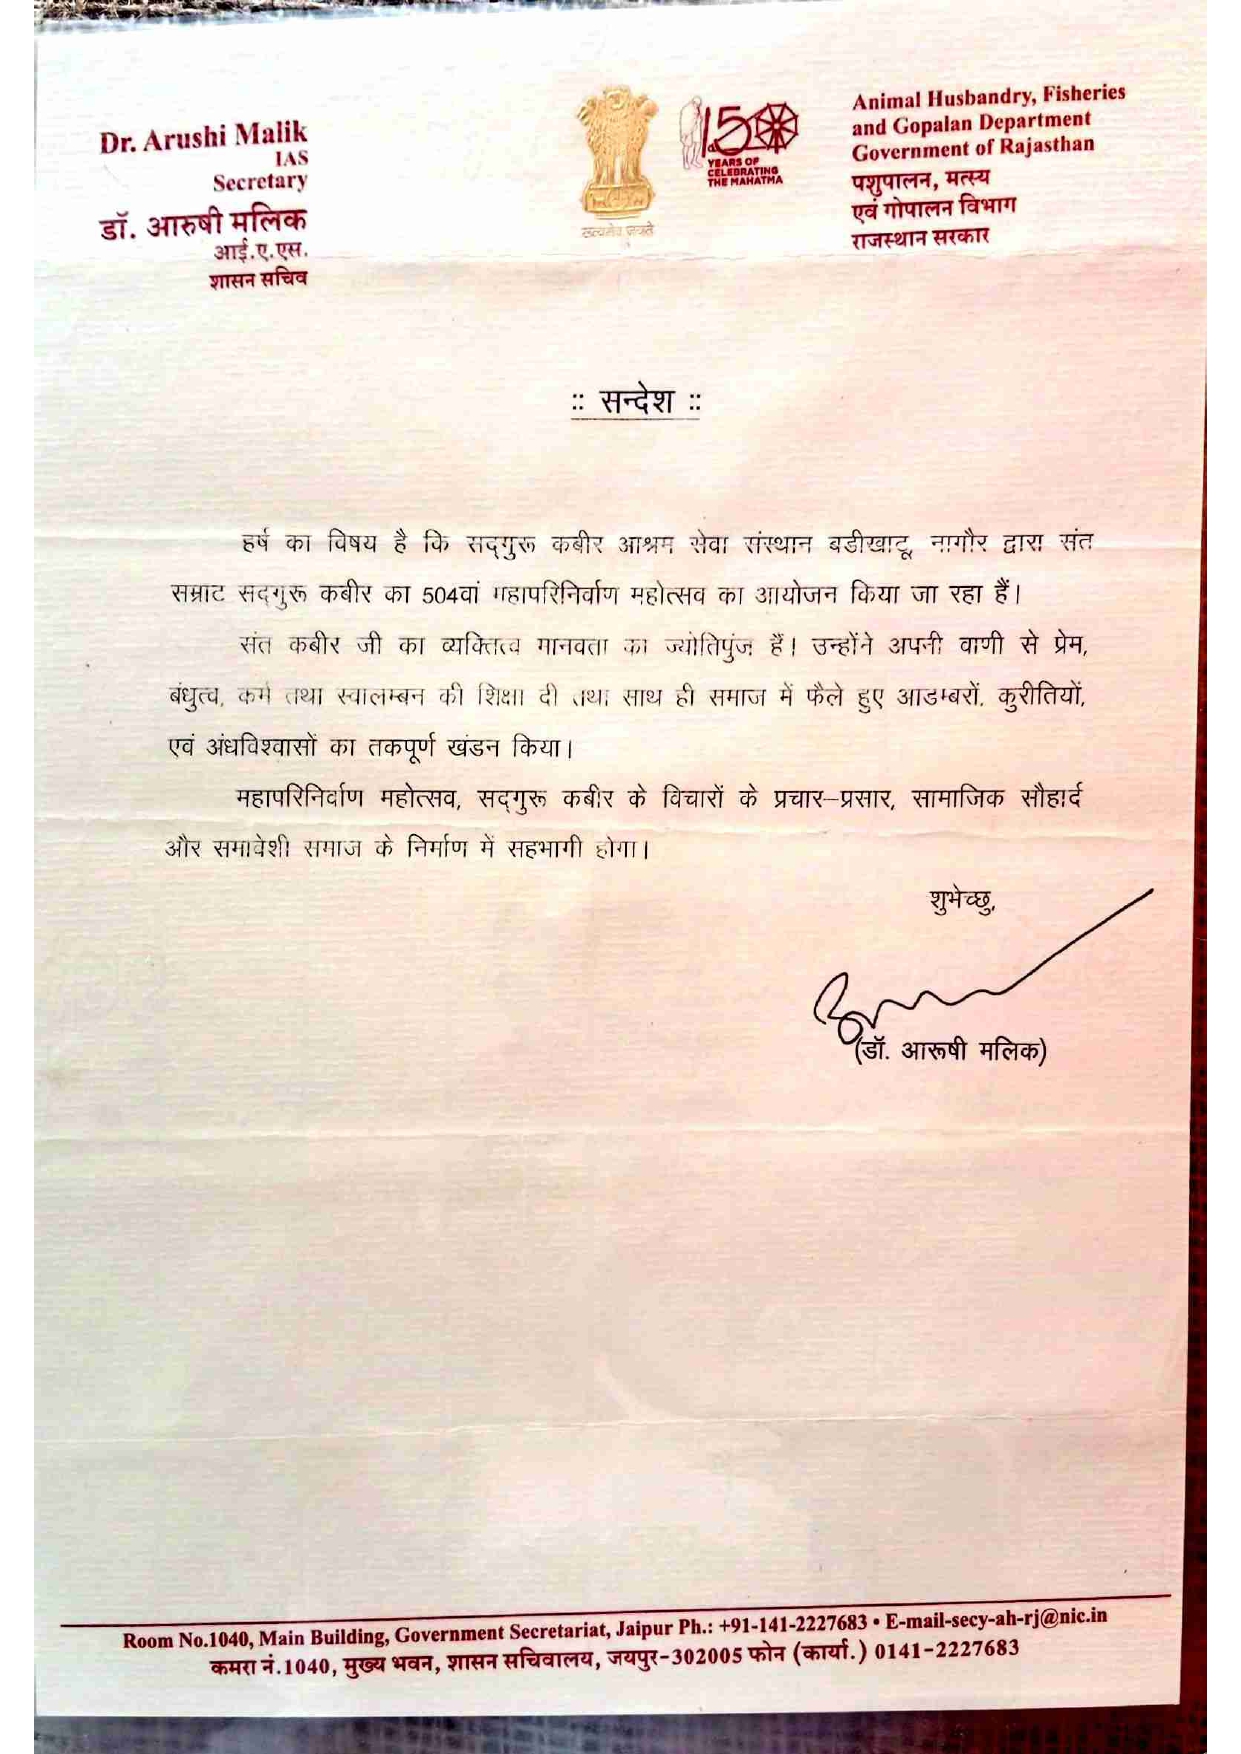 Dr. Arushi Malik
IAS
Secretary
डॉ. आरुषी मलिक
आई.ए.एस.
शासन सचिव
सत्यमेव जयते
150
YEARS OF
CELEBRATING
THE MAHATMA
Animal Husbandry, Fisheries
and Gopalan Department
Government of Rajasthan
पशुपालन, मत्स्य
एवं गोपालन विभाग
राजस्थान सरकार
:: सन्देश ::
हर्ष का विषय है कि सद्गुरू कबीर आश्रम सेवा संस्थान बडीखाटू, नागौर द्वारा संत
सम्राट सद्गुरू कबीर का 504वां महापरिनिर्वाण महोत्सव का आयोजन किया जा रहा हैं।
संत कबीर जी का व्यक्तित्व मानवता का ज्योतिपुंज हैं। उन्होंने अपनी वाणी से प्रेम,
बंधुत्व, कर्म तथा स्वालम्बन की शिक्षा दी तथा साथ ही समाज में फैले हुए आडम्बरों, कुरीतियों,
एवं अंधविश्वासों का तकपूर्ण खंडन किया।
महापरिनिर्वाण महोत्सव, सद्गुरू कबीर के विचारों के प्रचार–प्रसार, सामाजिक सौहार्द
और समावेशी समाज के निर्माण में सहभागी होगा।
शुभेच्छु,
(डॉ. आरूषी मलिक)
Room No.1040, Main Building, Government Secretariat, Jaipur Ph.: +91-141-2227683 • E-mail-secy-ah-rj@nic.in
कमरा नं.1040, मुख्य भवन, शासन सचिवालय, जयपुर-302005 फोन (कार्या.) 0141-2227683